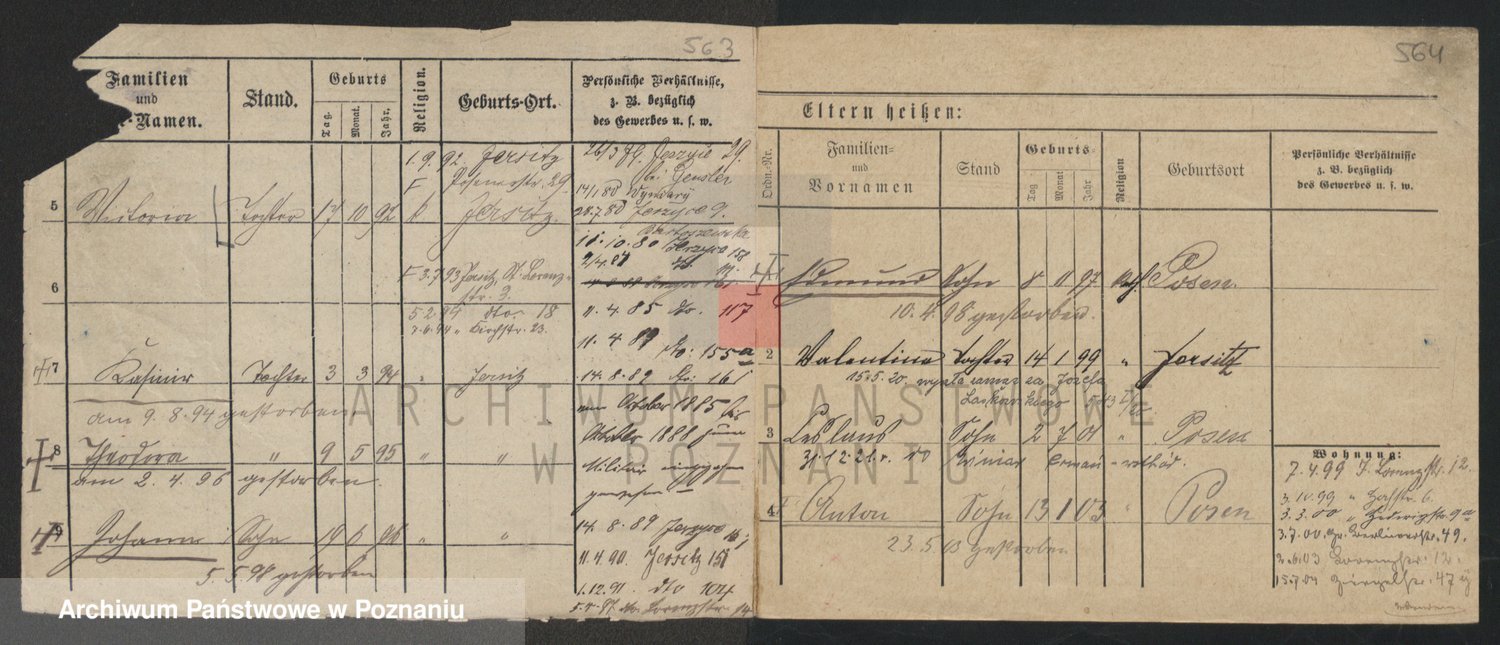 563
Familien
und
-Namen.
Stand.
Geburts
Tag.
Monat.
Jahr.
Religion.
Geburts-Ort.
Persönliche Verhältnisse,
z. B. bezüglich
des Gewerbes u. s. w.
1.9.92. Jersitz
Posenerstr. 29
5 Victoria Tochter 17 10 92 Jersitz
6
F 3.7.93 Jersitz, St. Lorenz-
str. 2.
5 2.94 dto. 18
7.6.94 " Kirchstr. 23.
7 Kasimir Tochter 3 3 94 " Jersitz
am 9.8.94 gestorben
8 Theodora " 9 5 95 " "
am 2.4.96 gestorben.
9 Johann Sohn 19 6 96 " "
5.5.98 gestorben
26/3 Jerzyce 29.
bei Gensler
14/1 80 Wyndary
28.7.80 Jerzyce 9.
11.10.80 Jerzyce 158
2/4.81
11.4.85 do. 117
11.4.89
No: 155a
14.8.89 No: 161
vom Oktober 1885 bis
Oktober 1888 zum
Militär eingezogen
gewesen —
14.8.89 Jerzyce
11.4.90. Jersitz 158
1.12.91. dto 104
5.4.97. do. Lorenzstr. 14
564
Eltern heißen:
Ordn.-Nr.
Familien-
und
Vornamen
Stand
Geburts-
Tag
Monat
Jahr
Religion
Geburtsort
Persönliche Verhältnisse
z. B. bezüglich
des Gewerbes u. s. w.
1 Edmund Sohn 8 11 97 kath. Posen.
10.4.98 gestorben.
2 Valentina Tochter 14 1 99 " Jersitz
15.5.20. wyszła zamąż za Józefa
Laskowskiego
3 Ceslaus Sohn 2 7 01 " Posen
31.12.21. r. do Winiar
4 Anton Sohn 13 1 03 " Posen
23.5.03 gestorben
Wohnung:
7.4.99 J. Lorenzstr. 12.
3.10.99 " 6.
3.3.00 " Hedwigstr. 9a
3.7.00. Gr. Berlinerstr. 49.
2.6.03 Lorenzstr. 12.
15.7.04 Ziegelstr. 47
ARCHIWUM PAŃSTWOWE
W POZNANIU
Archiwum Państwowe w Poznaniu